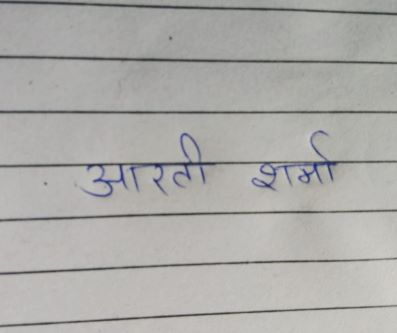 आरती शर्मा